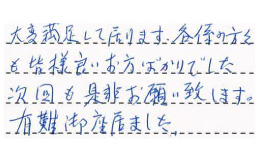 大変満足して居ります。各係の方々
も皆様良いお方ばかりでした
次回も是非お願い致します。
有難御座居ました。